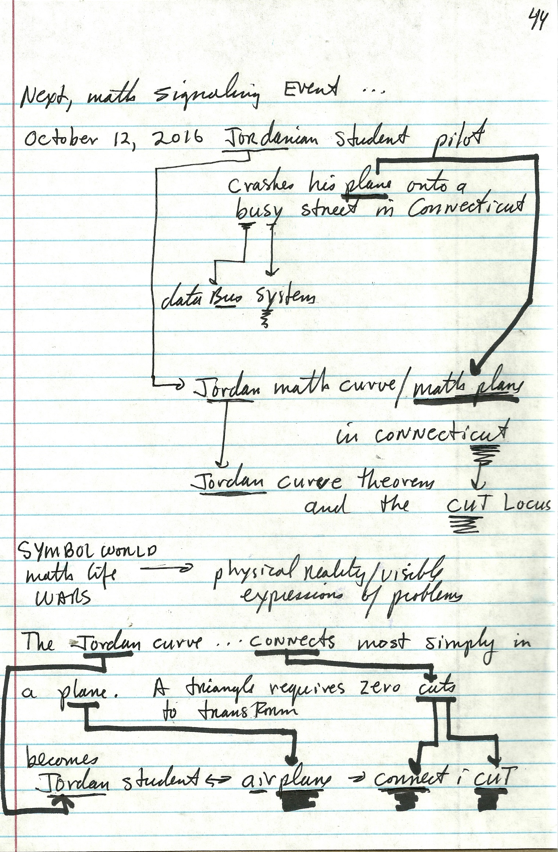 44
Next, math signaling Event ...
October 12, 2016 Jordanian student pilot
crashes his plane onto a
busy street in Connecticut
data Bus system
Jordan math curve/math plane
in connecticut
Jordan curve theorem
and the cut Locus
SYMBOL WORLD
math life → physical reality/visible
WARS expressions of problems
The Jordan curve ... connects most simply in
a plane. A triangle requires zero cuts
to transform
becomes
Jordan student ↔ airplane → connect i cut